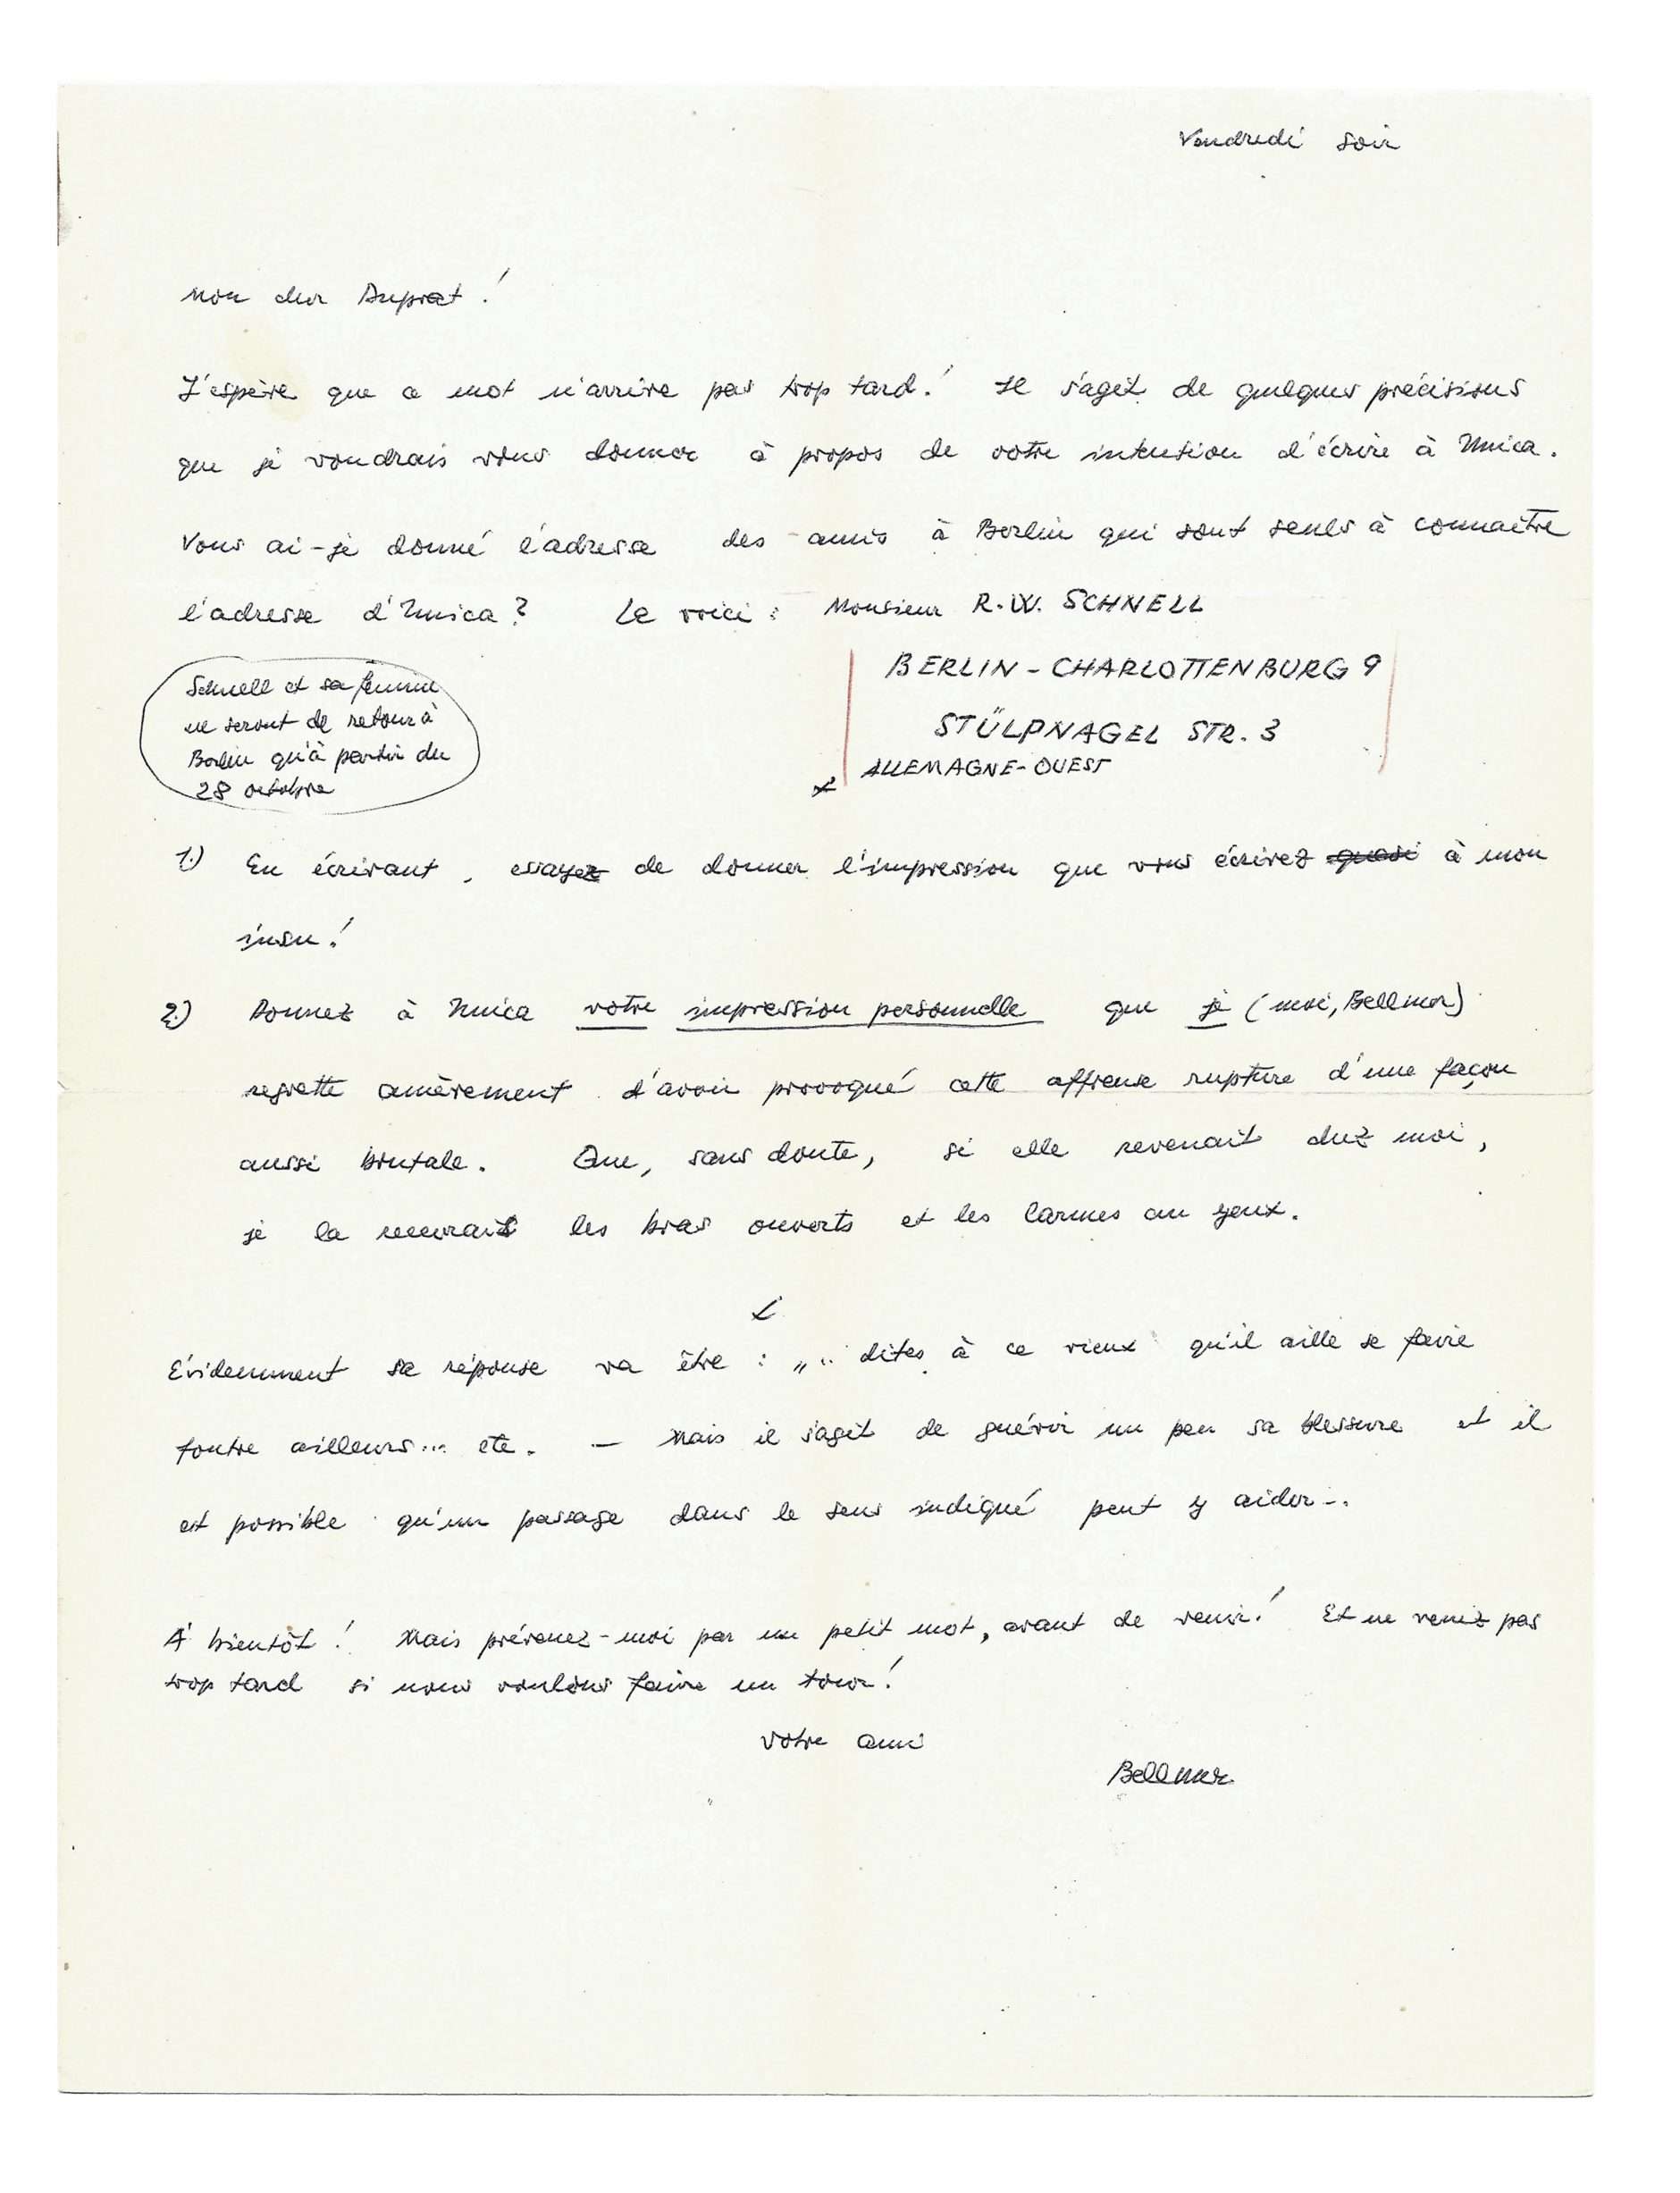 Vendredi soir
Mon cher Duprat !
J'espère que ce mot n'arrive pas trop tard ! Il s'agit de quelques précisions
que je voudrais vous donner à propos de votre intention d'écrire à Unica.
Vous ai-je donné l'adresse des amis à Berlin qui sont seuls à connaître
l'adresse d'Unica ? La voici : Monsieur R.W. SCHNELL
BERLIN - CHARLOTTENBURG 9
STÜLPNAGEL STR. 3
ALLEMAGNE-OUEST
Schnell et sa femme
ne seront de retour à
Berlin qu'à partir du
28 octobre
1.) En écrivant, essayez de donner l'impression que vous écrivez quasi à mon
insu !
2.) Donnez à Unica votre impression personnelle que je (moi, Bellmer)
regrette amèrement d'avoir provoqué cette affreuse rupture d'une façon
aussi brutale. Que, sans doute, si elle revenait chez moi,
je la recevrais les bras ouverts et les larmes au yeux.
Évidemment sa réponse va être : „.. dites à ce vieux qu'il aille se faire
foutre ailleurs... etc. — Mais il s'agit de guérir un peu sa blessure et il
est possible qu'un passage dans le sens indiqué peut y aider -.
À bientôt ! Mais prévenez-moi par un petit mot, avant de venir ! Et ne venez pas
trop tard si nous voulons faire un tour !
Votre ami
Bellmer